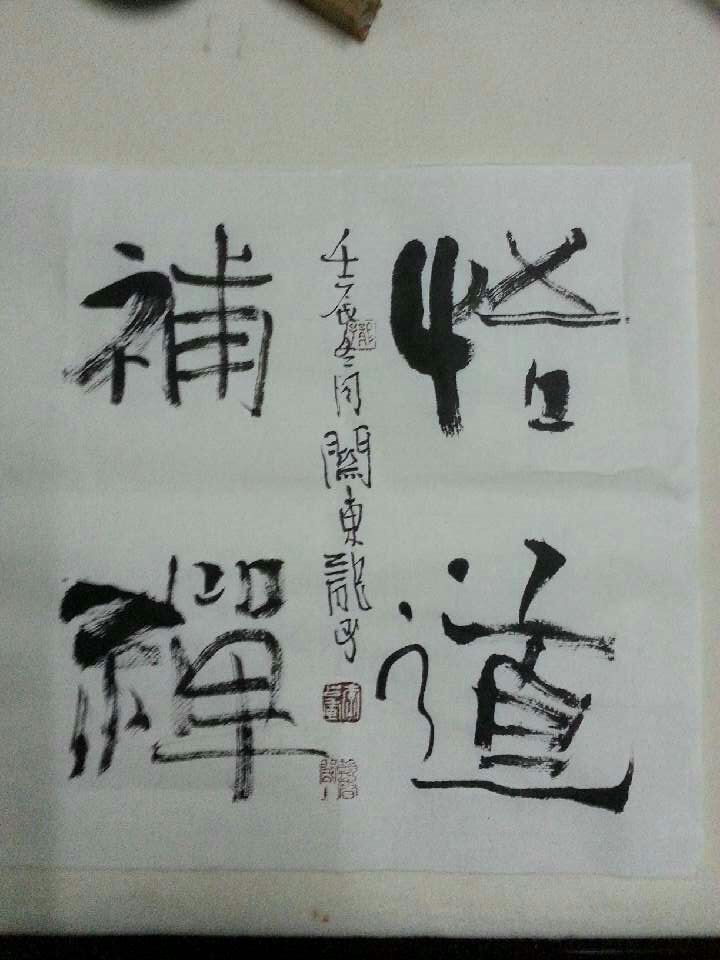 悟道
補禪
壬辰冬月關東龍子